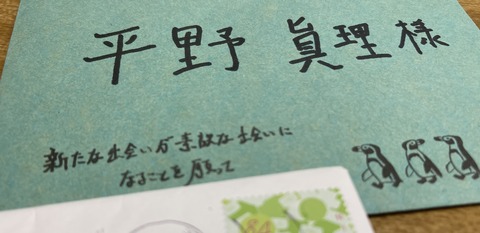 平野 眞理様
新たな出会いが素敵な出会いに
なることを願って
84